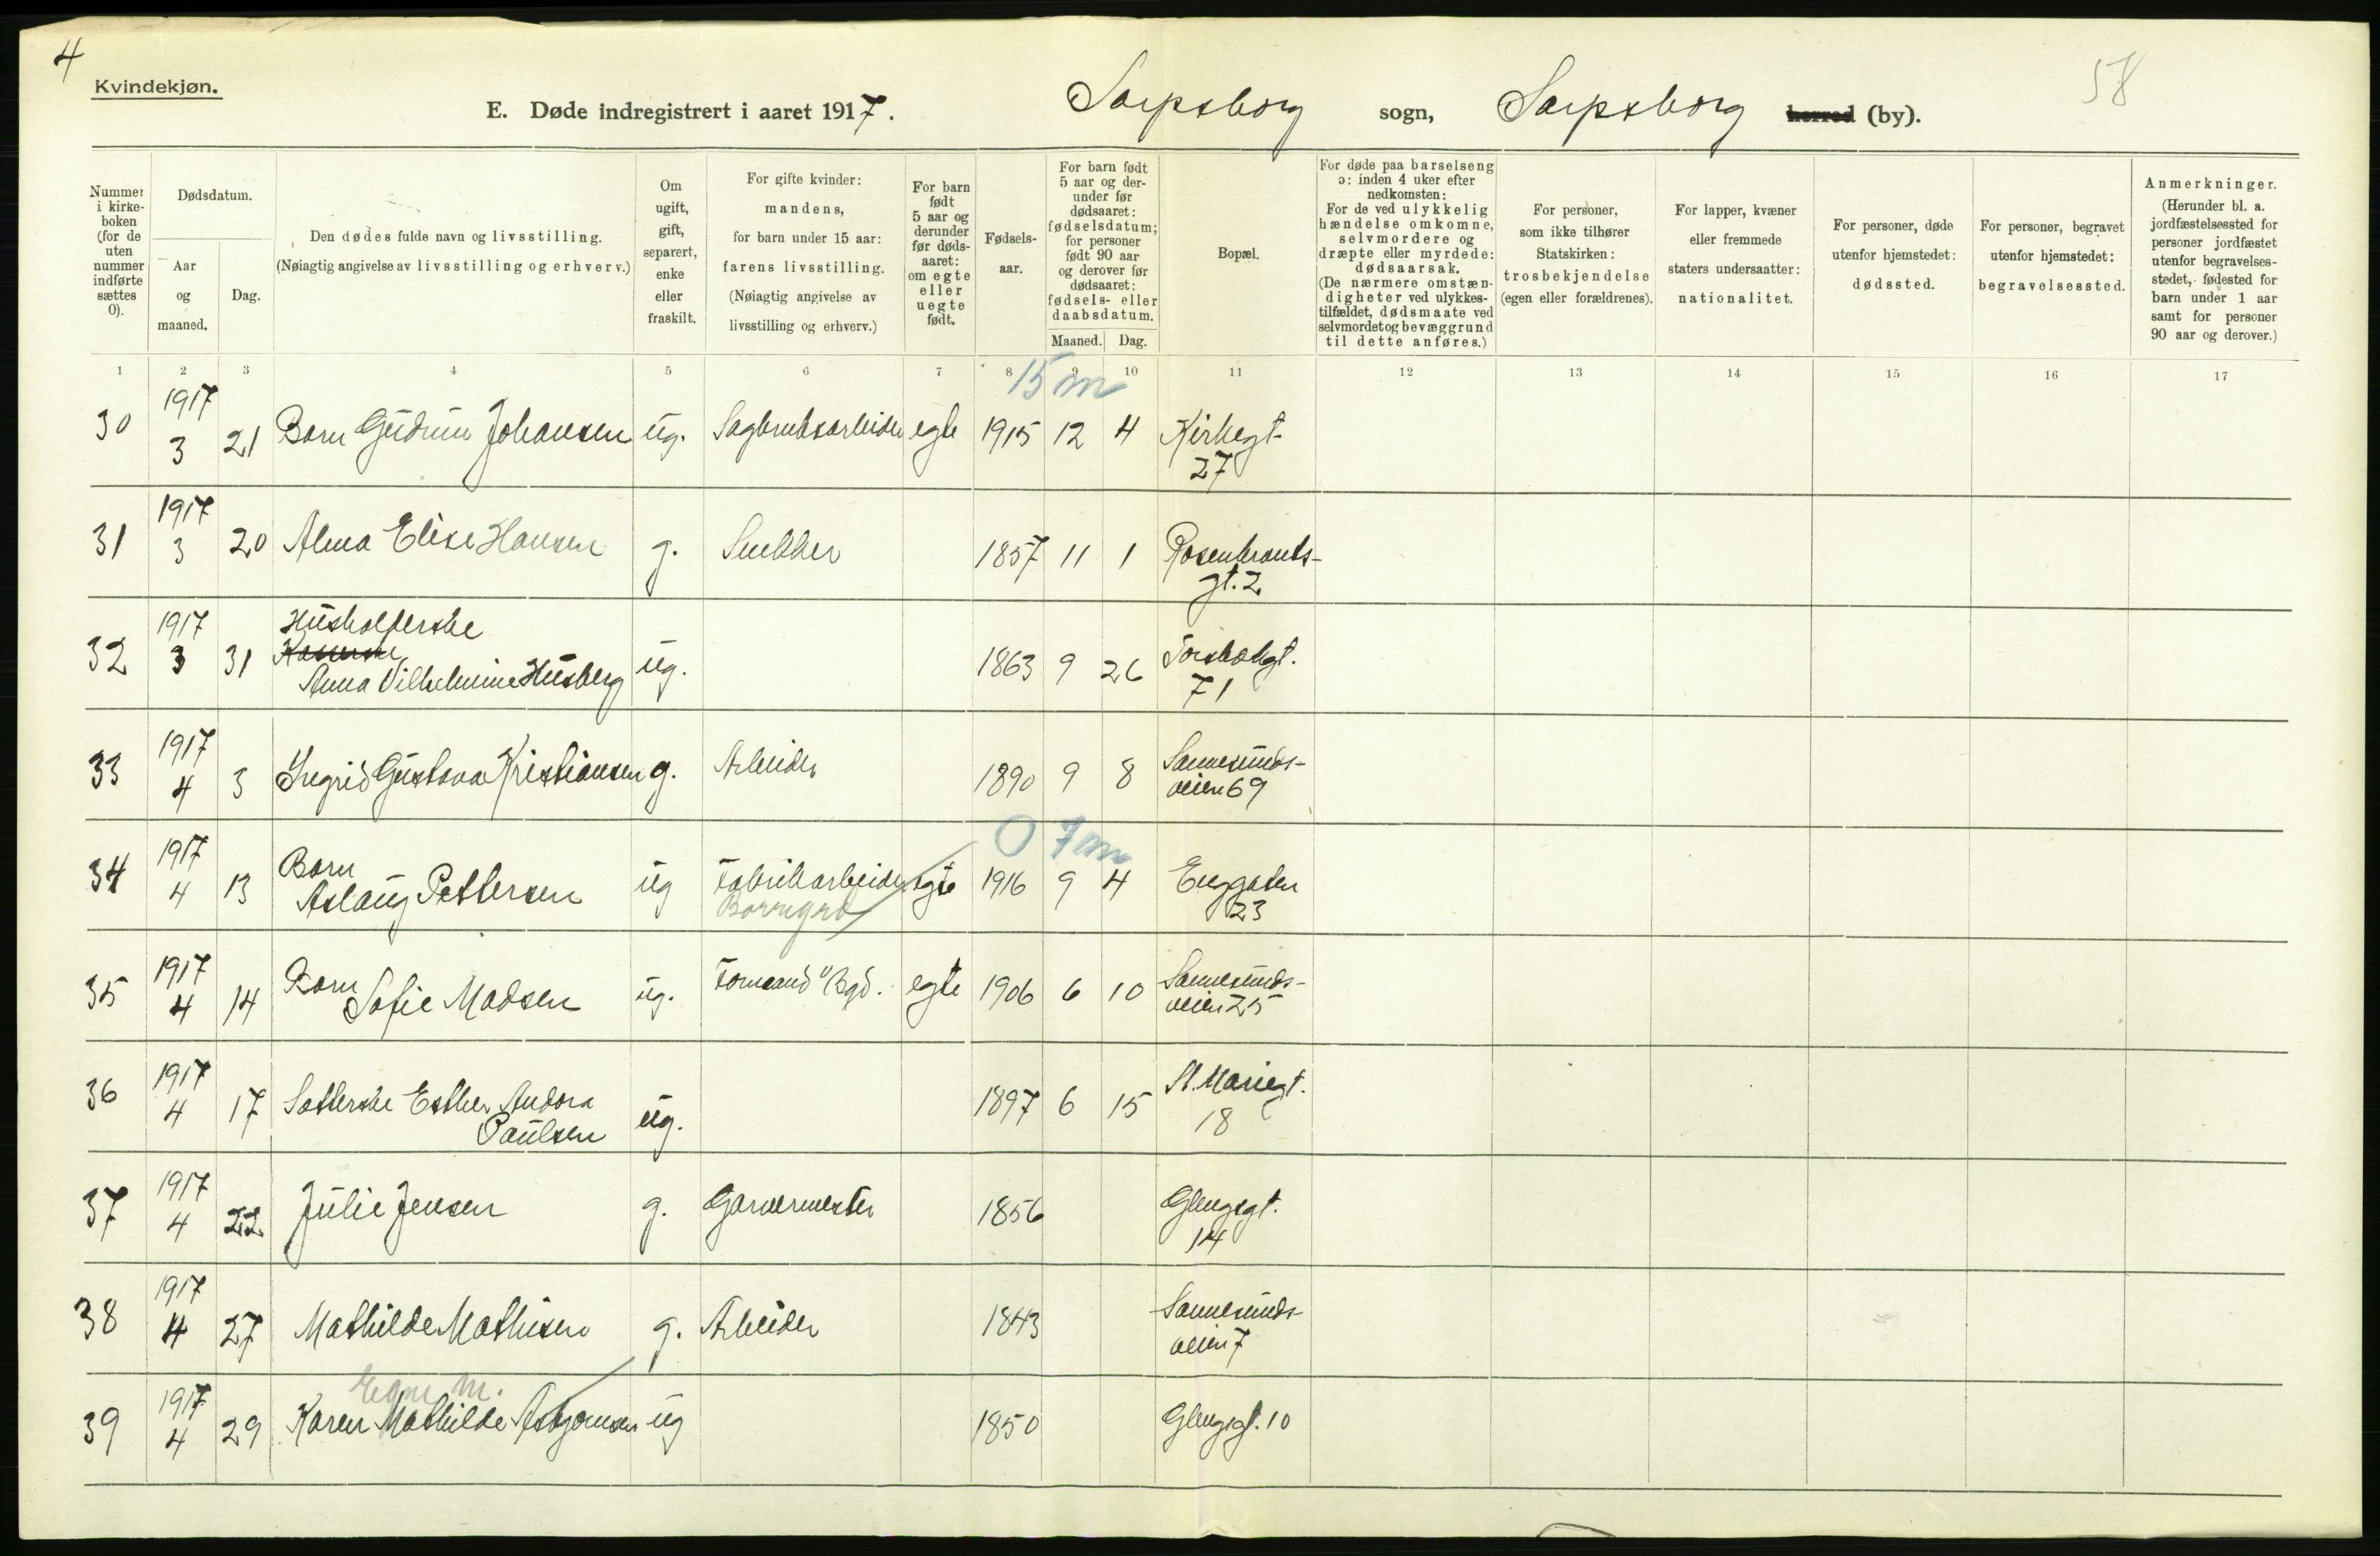 4
Kvindekjøn.
58
E. Døde indregistrert i aaret 1917. Sarpsborg sogn, Sarpsborg herred (by).
Nummer i kirkeboken (for de uten nummer indførte sættes 0).
Dødsdatum.
Aar og maaned.
Dag.
Den dødes fulde navn og livsstilling.
(Nøiagtig angivelse av livsstilling og erhverv.)
Om ugift, gift, separert, enke eller fraskilt.
For gifte kvinder: mandens, for barn under 15 aar: farens livsstilling. (Nøiagtig angivelse av livsstilling og erhverv.)
For barn født 5 aar og derunder før dødsaaret: om egte eller uegte født.
Fødselsaar.
For barn født 5 aar og derunder før dødsaaret: fødselsdatum; for personer født 90 aar og derover før dødsaaret: fødsels- eller daabsdatum.
Maaned. Dag.
Bopæl.
For døde paa barselseng ɔ: inden 4 uker efter nedkomsten: For de ved ulykkelig hændelse omkomne, selvmordere og dræpte eller myrdede: dødsaarsak. (De nærmere omstændigheter ved ulykkestilfældet, dødsmaate ved selvmordet og bevæggrund til dette anføres.)
For personer, som ikke tilhører Statskirken: trosbekjendelse (egen eller forældrenes).
For lapper, kvæner eller fremmede staters undersaatter: nationalitet.
For personer, døde utenfor hjemstedet: dødssted.
For personer, begravet utenfor hjemstedet: begravelsessted.
Anmerkninger. (Herunder bl. a. jordfæstelsessted for personer jordfæstet utenfor begravelsesstedet, fødested for barn under 1 aar samt for personer 90 aar og derover.)
1 2 3 4 5 6 7 8 9 10 11 12 13 14 15 16 17
15 m
30 1917 3 21 Barn Gudrun Johansen ug. Sagbruksarbeider egte 1915 12 4 Kirkegt. 27
31 1917 3 20 Alma Elise Hansen g. Snekker 1857 11 1 Rosenkrants- gt. 2
32 1917 3 31 Husholderske
Anna Vilhelmine Husberg ug. 1863 9 26 Torsbækgt. 71
33 1917 4 3 Ingrid Gustava Kristiansen g. Arbeider 1890 9 8 Sannesunds- veien 69
0 7 m
34 1917 4 13 Barn
Aslaug Pettersen ug Fabrikarbeider egte 1916 9 4 Enggaten 23
Borregrd
35 1917 4 14 Barn
Sofie Madsen ug. Formand egte 1906 6 10 Sannesunds- veien 25
36 1917 4 17 Sætterske Esther Andora
Paulsen ug. 1897 6 15 St. Mariegt. 18
37 1917 4 22 Julie Jensen g. Garvermester 1856 Glengsgt. 14
38 1917 4 27 Mathilde Mathisen g. Arbeider 1843 Sannesunds- veien 7
Egne m.
39 1917 4 29 Karen Mathilde Asbjørnsen ug 1850 Glengsgt. 10